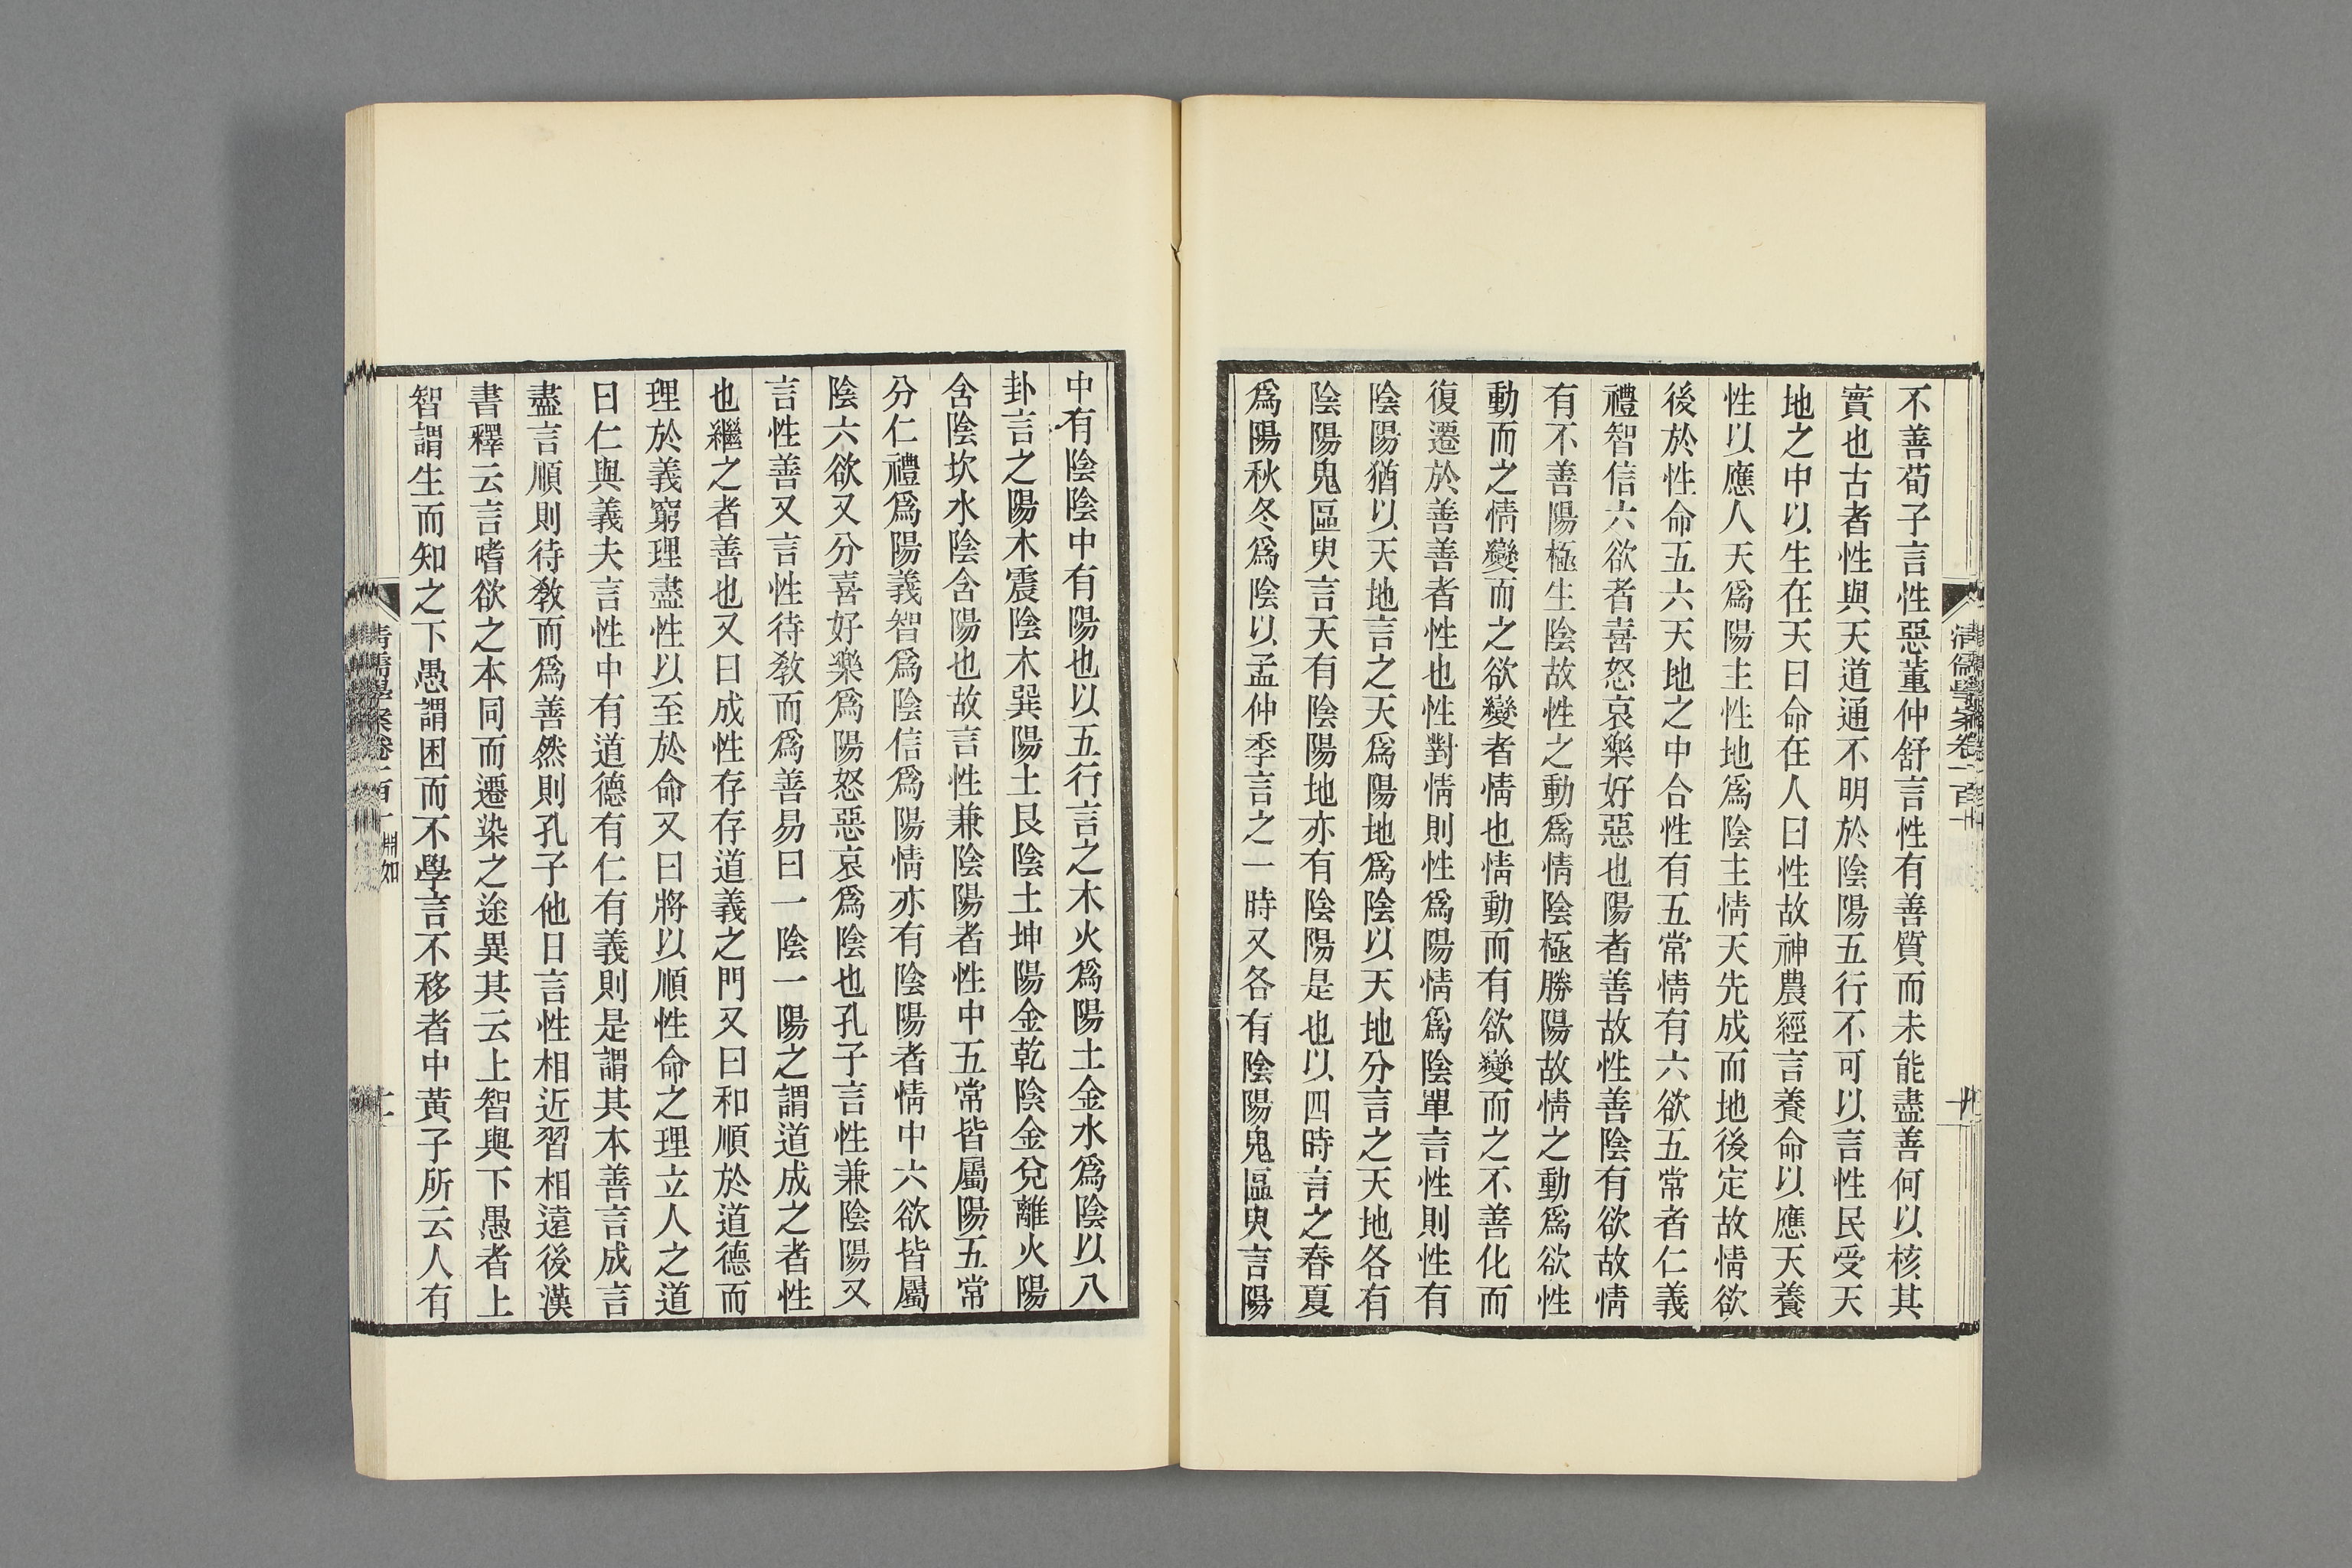 不善荀子言性惡董仲舒言性有善質而未能盡善何以核其
實也古者性與天道通不明於陰陽五行不可以言性民受天
地之中以生在天曰命在人曰性故神農經言養命以應天養
性以應人天爲陽主性地爲陰主情天先成而地後定故情欲
後於性命五六天地之中合性有五常情有六欲五常者仁義
禮智信六欲者喜怒哀樂好惡也陽者善故性善陰有欲故情
有不善陽極生陰故性之動爲情陰極勝陽故情之動爲欲性
動而之情變而之欲變者情也情動而有欲變而之不善化而
復遷於善善者性也性對情則性爲陽情爲陰單言性則性有
陰陽猶以天地言之天爲陽地爲陰以天地分言之天地各有
陰陽鬼區臾言天有陰陽地亦有陰陽是也以四時言之春夏
爲陽秋冬爲陰以孟仲季言之一時又各有陰陽鬼區臾言陽
中有陰陰中有陽也以五行言之木火爲陽土金水爲陰以八
卦言之陽木震陰木巽陽土艮陰土坤陽金乾陰金兌離火陽
含陰坎水陰含陽也故言性兼陰陽者性中五常皆屬陽五常
分仁禮爲陽義智爲陰信爲陽情亦有陰陽者情中六欲皆屬
陰六欲又分喜好樂爲陽怒惡哀爲陰也孔子言性兼陰陽又
言性善又言性待敎而爲善易曰一陰一陽之謂道成之者性
也繼之者善也又曰成性存存道義之門又曰和順於道德而
理於義窮理盡性以至於命又曰將以順性命之理立人之道
曰仁與義夫言性中有道德有仁有義則是謂其本善言成言
盡言順則待敎而爲善然則孔子他日言性相近習相遠後漢
書釋云言嗜欲之本同而遷染之途異其云上智與下愚者上
智謂生而知之下愚謂困而不學言不移者中黃子所云人有
清儒學案卷一百十